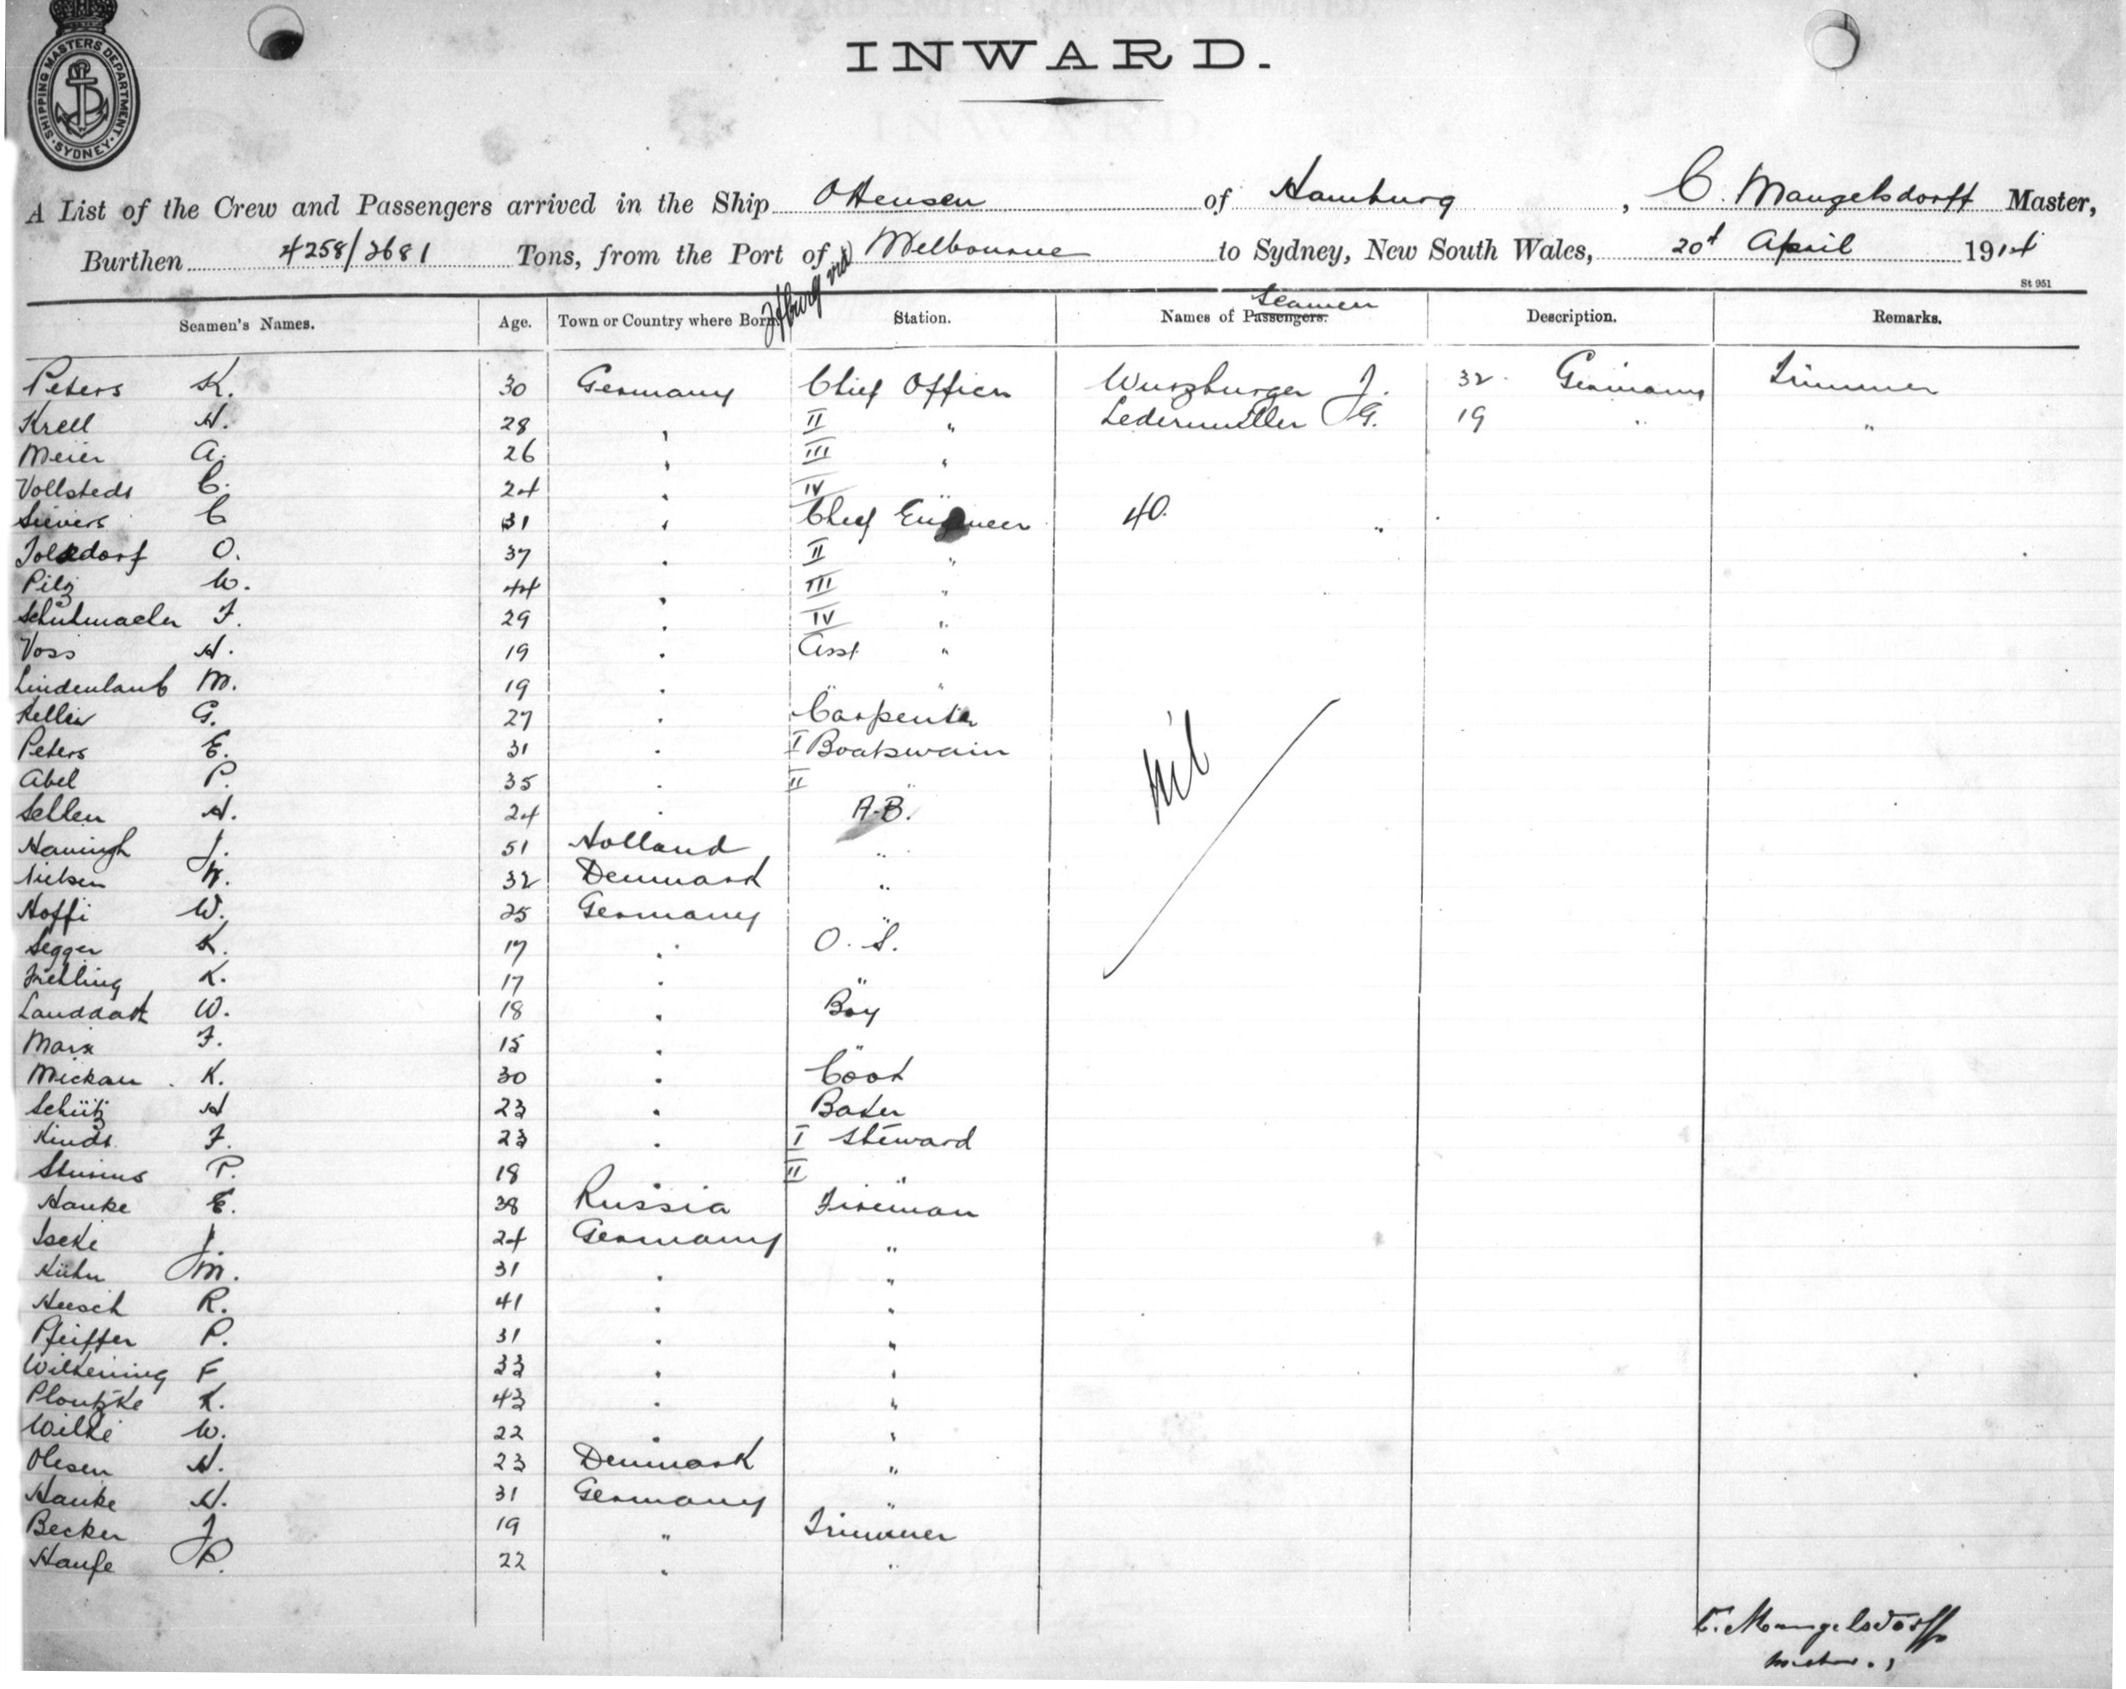 SHIPPING MASTERS DEPARTMENT
SYDNEY
INWARD.
A List of the Crew and Passengers arrived in the Ship Ottensen of Hamburg, C. Mangelsdorff Master,
Burthen 4258/2681 Tons, from the Port of Melbourne to Sydney, New South Wales, 20t April 1914
St 951
Seamen's Names. Age. Town or Country where Born. Station. Names of Passengers. Seamen Description. Remarks.
Peters K. 30 Germany Chief Officer Wurzburger J. 32 Germany Trimmer
Krell H. 28 " II " Ledermuller G. 19 " "
Meier A. 26 " III "
Vollstedt C. 24 " IV "
Sievers C 31 " Chief Engineer 40. "
O. 37 " II "
Pilz W. 44 " III "
Schuhmacher F. 29 " IV "
Voss H. 19 " Asst "
Lindenlaub M. 19 " " "
Keller G. 27 " Carpenter
Peters E. 31 " I Boatswain
Abel P. 35 " II "
Sellen H. 24 " A.B.
J. 51 Holland "
Nielsen W. 32 Denmark "
Hoffi W. 25 Germany "
Segger K. 17 " O.S.
K. 17 " "
W. 18 " Boy
Marx F. 15 " "
Mickan K. 30 " Cook
Schütz H 23 " Baker
Kindt F. 23 " I Steward
P. 18 " II "
Hanke E. 38 Russia Fireman
Iseke J. 24 Germany "
Kühn M. 31 " "
Heesch R. 41 " "
Pfeiffer P. 31 " "
Wilkening F 33 " "
Ploutzke K. 43 " "
Wilke W. 22 " "
Olesen H. 23 Denmark "
Hanke H. 31 Germany "
Becker J. 19 " Trimmer
Haufe P. 22 " "
Nil
C. Mangelsdorff
Master.